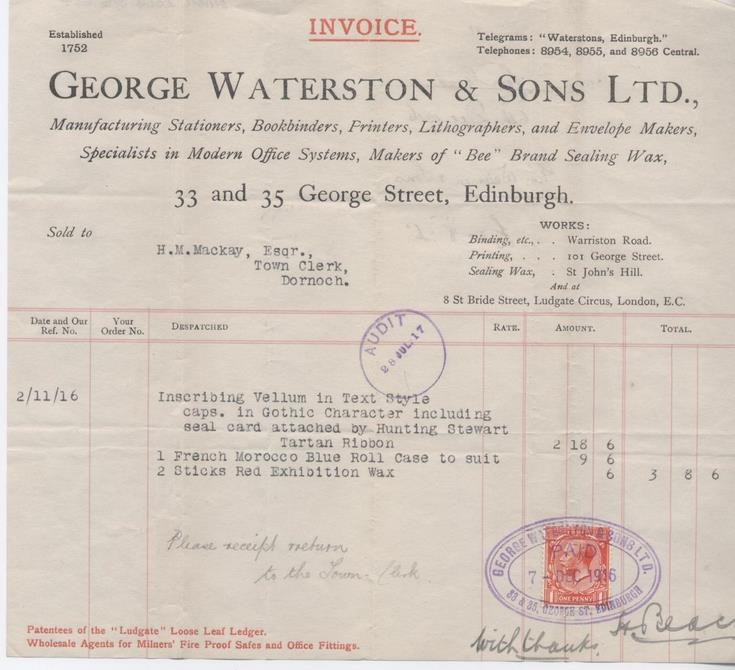 INVOICE.
Established
1752
Telegrams: "Waterstons, Edinburgh."
Telephones: 8954, 8955, and 8956 Central.
GEORGE WATERSTON & SONS LTD.,
Manufacturing Stationers, Bookbinders, Printers, Lithographers, and Envelope Makers,
Specialists in Modern Office Systems, Makers of "Bee" Brand Sealing Wax,
33 and 35 George Street, Edinburgh.
Sold to
H.M.Mackay, Esqr.,
Town Clerk,
Dornoch.
WORKS:
Binding, etc., . . Warriston Road.
Printing, . . . 101 George Street.
Sealing Wax, . St John's Hill.
And at
8 St Bride Street, Ludgate Circus, London, E.C.
Date and Our Ref. No. Your Order No. DESPATCHED RATE. AMOUNT. TOTAL.
AUDIT
28 JUL. 17
2/11/16 Inscribing Vellum in Text Style
caps. in Gothic Character including
seal card attached by Hunting Stewart
Tartan Ribbon 2 18 6
1 French Morocco Blue Roll Case to suit 9 6
2 Sticks Red Exhibition Wax 6 3 8 6
Please receipt & return
to the Town-Clerk
GEORGE WATERSTON & SONS LTD.
PAID
7-DEC 1916
33 & 35, GEORGE ST. EDINBURGH
ONE PENNY
With thanks,
Patentees of the "Ludgate" Loose Leaf Ledger.
Wholesale Agents for Milners' Fire Proof Safes and Office Fittings.